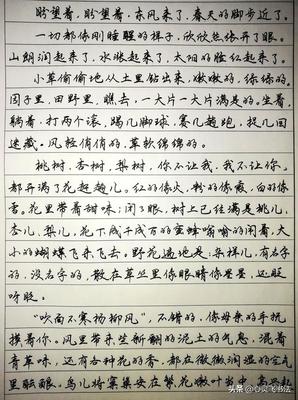 盼望着，盼望着，东风来了，春天的脚步近了。
一切都像刚睡醒的样子，欣欣然张开了眼。
山朗润起来了，水涨起来了，太阳的脸红起来了。
小草偷偷地从土里钻出来，嫩嫩的，绿绿的。
园子里，田野里，瞧去，一大片一大片满是的。坐着，
躺着，打两个滚，踢几脚球，赛几趟跑，捉几回
迷藏。风轻悄悄的，草软绵绵的。
桃树，杏树，梨树，你不让我，我不让你，
都开满了花赶趟儿。红的像火，粉的像霞，白的像
雪。花里带着甜味；闭了眼，树上已经满是桃儿，
杏儿，梨儿，花下成千成万的蜜蜂嗡嗡的闹着，大
小的蝴蝶飞来飞去。野花遍地是：杂样儿，有名字
的，没名字的，散在草丛里像眼睛像星星，还眨
呀眨。
“吹面不寒杨柳风”，不错的，像母亲的手抚
摸着你，风里带来些新翻的泥土的气息，混着
青草味，还有各种花的香，都在微微润湿的空气
里酝酿，鸟儿将窠巢安在繁花嫩叶当中，高兴起
头条@心灵飞书法